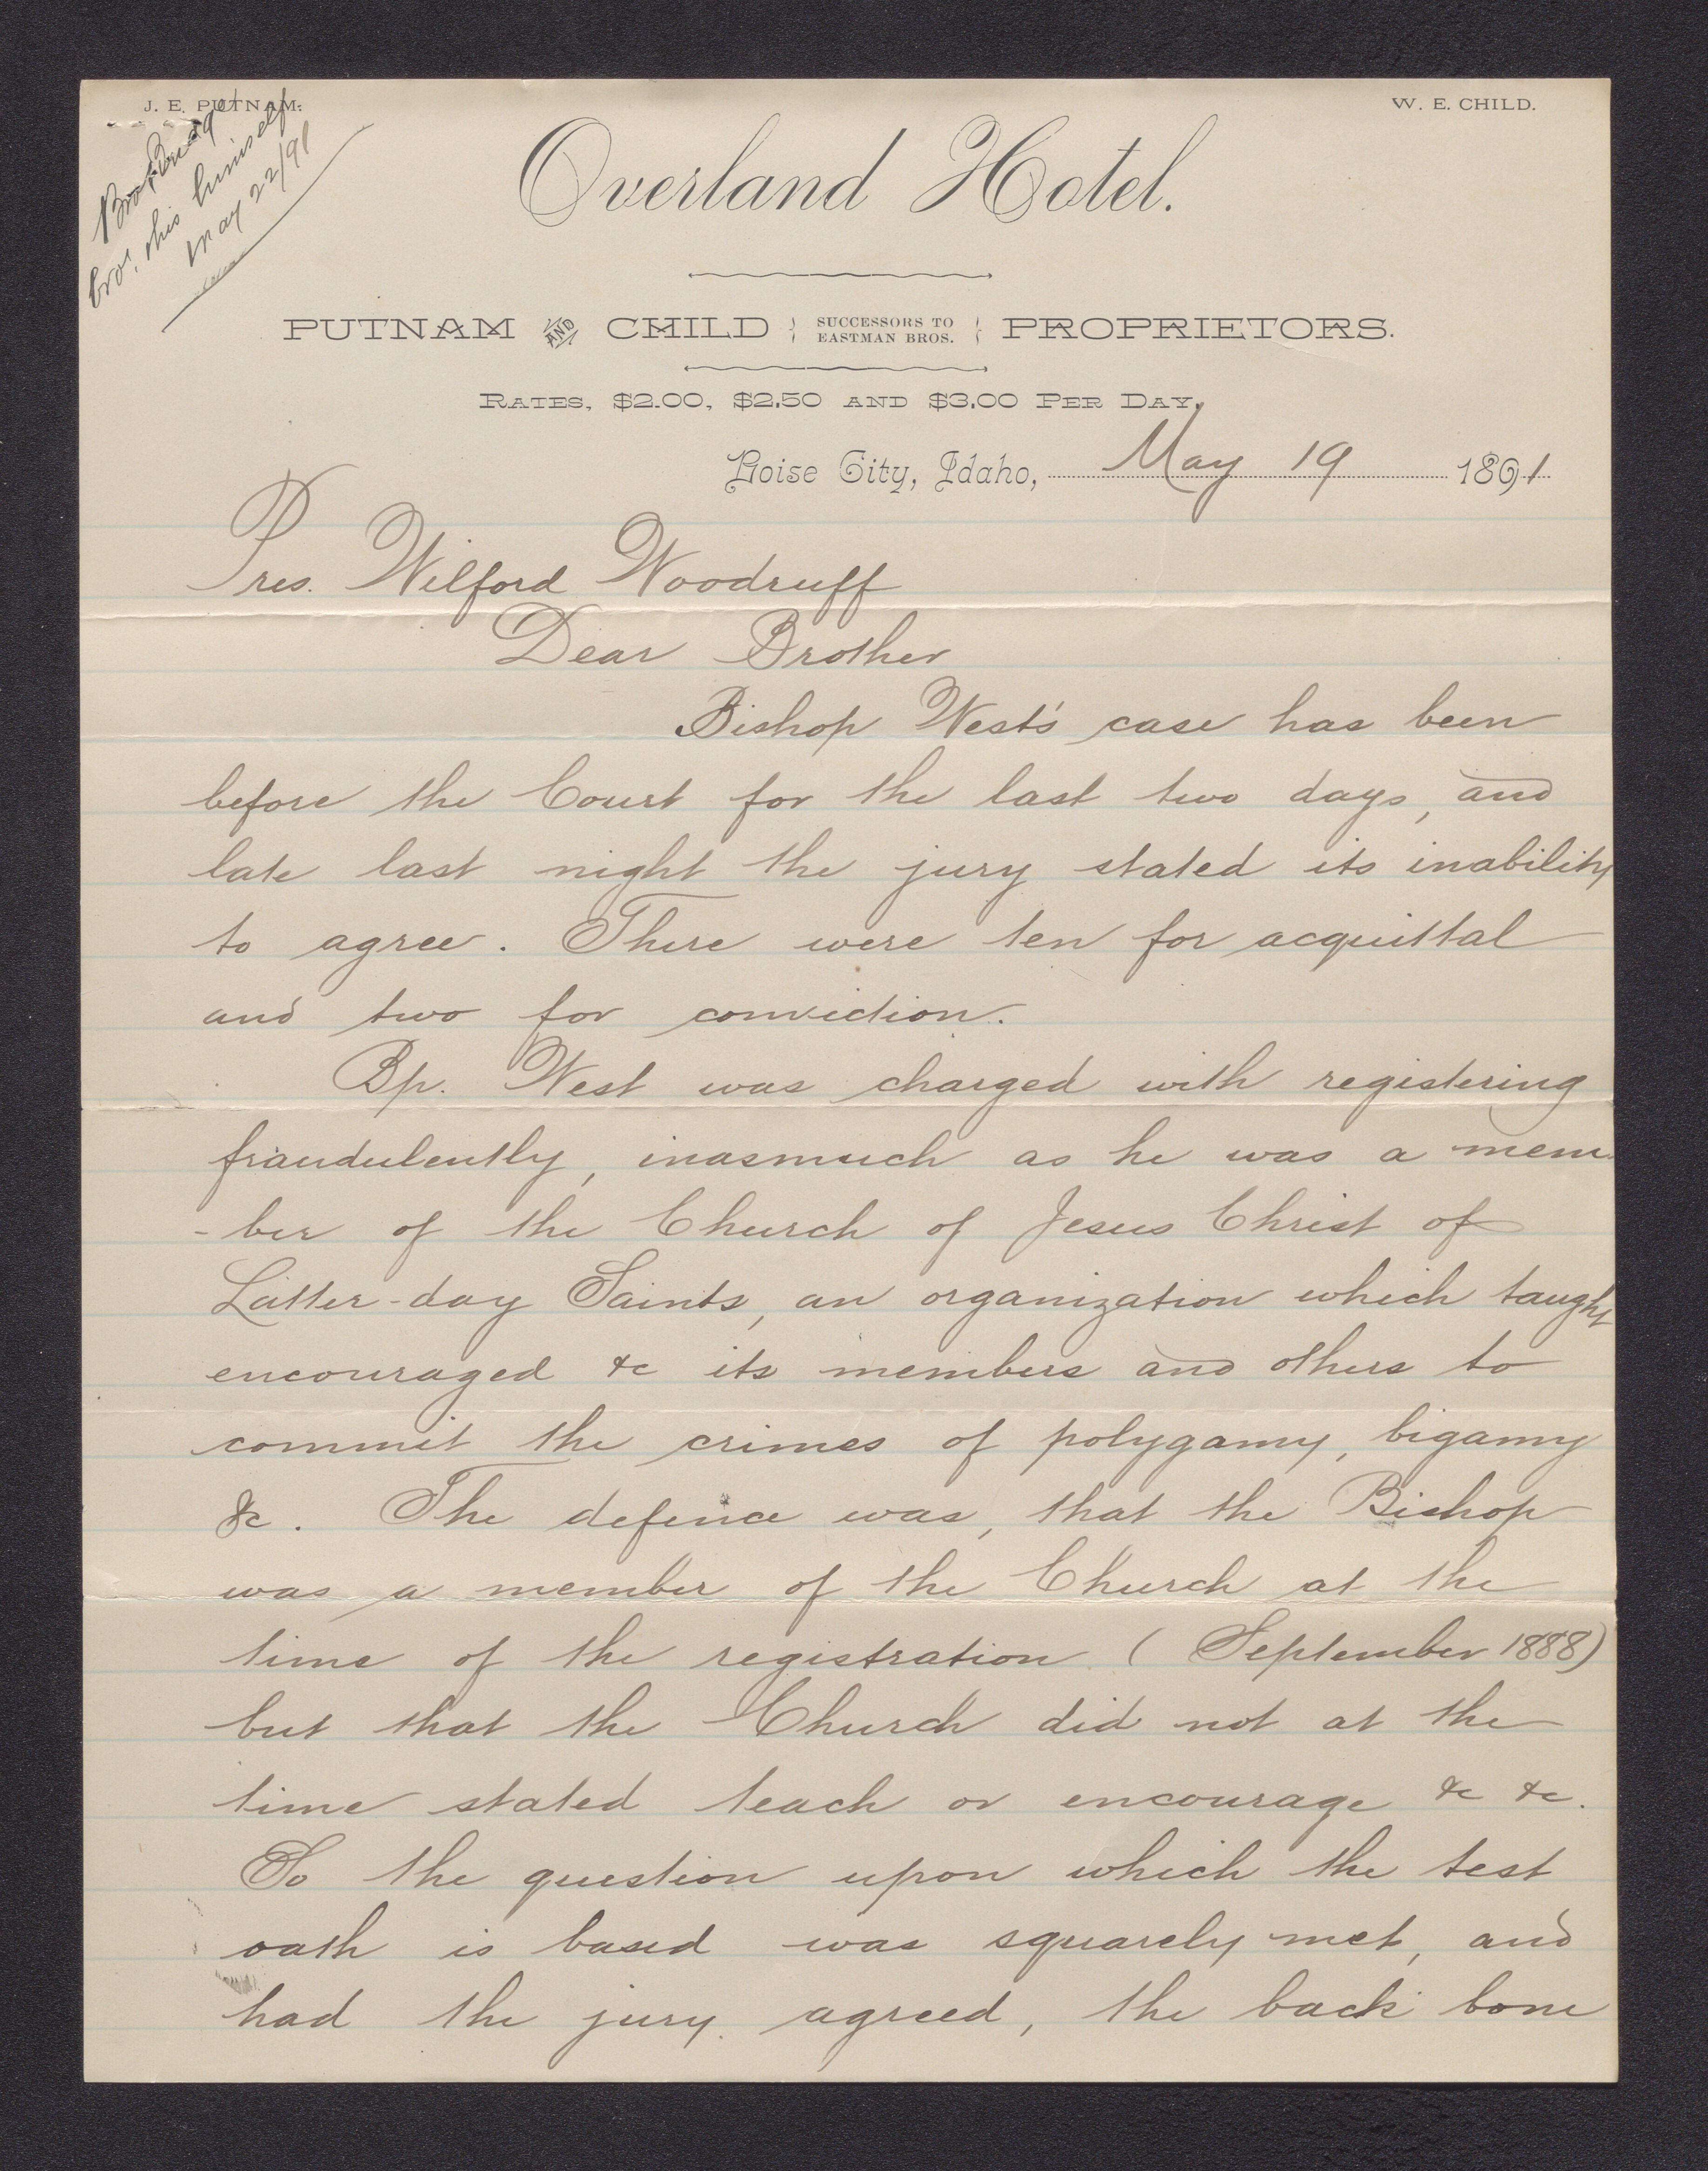 J. E. PUTNAM.
W. E. CHILD.
bro't this himself
May 22/91
Overland Hotel.
PUTNAM AND CHILD { SUCCESSORS TO EASTMAN BROS. } PROPRIETORS.
RATES, $2.00, $2.50 AND $3.00 PER DAY.
Boise City, Idaho, May 19 1891
Pres. Wilford Woodruff
Dear Brother
Bishop West's case has been
before the Court for the last two days, and
late last night the jury stated its inability
to agree. There were ten for acquittal
and two for conviction.
Bp. West was charged with registering
fraudulently, inasmuch as he was a mem
-ber of the Church of Jesus Christ of
Latter-day Saints, an organization which taught
encouraged &c its members and others to
commit the crimes of polygamy, bigamy
&c. The defence was, that the Bishop
was a member of the Church at the
time of the registration (September 1888)
but that the Church did not at the
time stated teach or encourage &c &c.
So the question upon which the test
oath is based was squarely met, and
had the jury agreed, the back bone